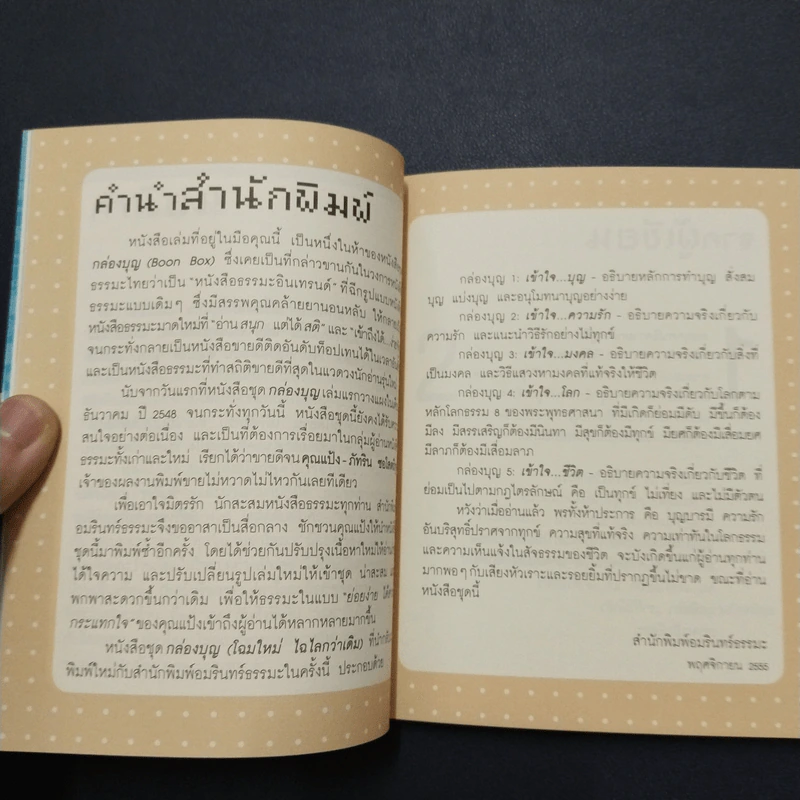 คำนำสำนักพิมพ์
หนังสือเล่มที่อยู่ในมือคุณนี้ เป็นหนึ่งในห้าของหนังสือ
กล่องบุญ (Boon Box) ซึ่งเคยเป็นที่กล่าวขานกันในวงการหนังสือ
ธรรมะไทยว่าเป็น "หนังสือธรรมะอินเทรนด์" ที่ฉีกรูปแบบหนังสือ
ธรรมะแบบเดิมๆ ซึ่งมีสรรพคุณคล้ายยานอนหลับ ให้กลายเป็น
หนังสือธรรมะมาดใหม่ที่ "อ่าน สนุก แต่ได้ สติ" และ "เข้าถึงได้...
จนกระทั่งกลายเป็นหนังสือขายดีติดอันดับท็อปเทนได้ในเวลา
และเป็นหนังสือธรรมะที่ทำสถิติขายดีที่สุดในแวดวงนักอ่านรุ่นใหม่
นับจากวันแรกที่หนังสือชุด กล่องบุญ เล่มแรกวางแผงใน
ธันวาคม ปี 2548 จนกระทั่งทุกวันนี้ หนังสือชุดนี้ยังคงได้รับ
สนใจอย่างต่อเนื่อง และเป็นที่ต้องการเรื่อยมาในกลุ่มผู้อ่าน
ธรรมะทั้งเก่าและใหม่ เรียกได้ว่าขายดีจน คุณแป้ง-ภัทริน
เจ้าของผลงานพิมพ์ขายไม่หวาดไม่ไหวกันเลยทีเดียว
เพื่อเอาใจมิตรรัก นักสะสมหนังสือธรรมะทุกท่าน สำนักพิมพ์
อมรินทร์ธรรมะจึงขออาสาเป็นสื่อกลาง ชักชวนคุณแป้งให้นำ
ชุดนี้มาพิมพ์ซ้ำอีกครั้ง โดยได้ช่วยกันปรับปรุงเนื้อหาใหม่ให้อ่าน
ได้ใจความ และปรับเปลี่ยนรูปเล่มใหม่ให้เข้าชุด น่าสะสม
พกพาสะดวกขึ้นกว่าเดิม เพื่อให้ธรรมะในแบบ "ย่อยง่าย ได้
กระแทกใจ" ของคุณแป้งเข้าถึงผู้อ่านได้หลากหลายมากขึ้น
หนังสือชุด กล่องบุญ (โฉมใหม่ ไฉไลกว่าเดิม) ที่นำ
พิมพ์ใหม่กับสำนักพิมพ์อมรินทร์ธรรมะในครั้งนี้ ประกอบด้วย
กล่องบุญ 1: เข้าใจ...บุญ - อธิบายหลักการทำบุญ สั่งสม
บุญ แบ่งบุญ และอนุโมทนาบุญอย่างง่าย
กล่องบุญ 2: เข้าใจ...ความรัก - อธิบายความจริงเกี่ยวกับ
ความรัก และแนะนำวิธีรักอย่างไม่ทุกข์
กล่องบุญ 3: เข้าใจ...มงคล - อธิบายความจริงเกี่ยวกับสิ่งที่
เป็นมงคล และวิธีแสวงหามงคลที่แท้จริงให้ชีวิต
กล่องบุญ 4: เข้าใจ...โลก - อธิบายความจริงเกี่ยวกับโลกตาม
หลักโลกธรรม 8 ของพระพุทธศาสนา ที่มีเกิดก็ย่อมมีดับ มีขึ้นก็ต้อง
มีลง มีสรรเสริญก็ต้องมีนินทา มีสุขก็ต้องมีทุกข์ มียศก็ต้องมีเสื่อมยศ
มีลาภก็ต้องมีเสื่อมลาภ
กล่องบุญ 5: เข้าใจ...ชีวิต - อธิบายความจริงเกี่ยวกับชีวิต ที่
ย่อมเป็นไปตามกฎไตรลักษณ์ คือ เป็นทุกข์ ไม่เที่ยง และไม่มีตัวตน
หวังว่าเมื่ออ่านแล้ว พรทั้งห้าประการ คือ บุญบารมี ความรัก
อันบริสุทธิ์ปราศจากทุกข์ ความสุขที่แท้จริง ความเท่าทันในโลกธรรม
และความเห็นแจ้งในสัจธรรมของชีวิต จะบังเกิดขึ้นแก่ผู้อ่านทุกท่าน
มากพอๆ กับเสียงหัวเราะและรอยยิ้มที่ปรากฏขึ้นไม่ขาด ขณะที่อ่าน
หนังสือชุดนี้
สำนักพิมพ์อมรินทร์ธรรมะ
พฤศจิกายน 2555